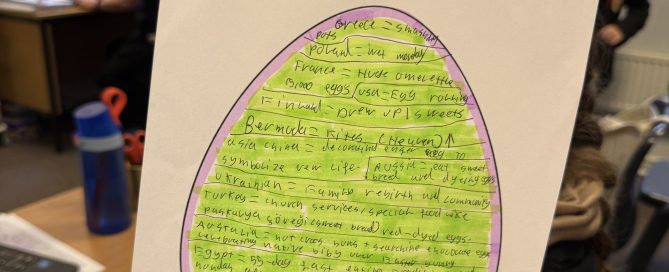 Greece = smashing
pots
Poland = wet monday
France = Huge omelette
3000 eggs / USA = Egg rolling
Finland = Drew up / sweets
Bermuda = Kites (Heaven) ↑
asia china = decorating easter egg to
symbolize new life.
Russia = eat sweet
bread and dyeing eggs
Ukrainian = Family rebirth and community
Turkey = church services / special food like
paskalya çöreği (sweet bread) red-dyed eggs.
Australia = hot cross buns + searching chocolate eggs
celebrating native bilby over Easter bunny
Egypt = 55-day fast
Monday